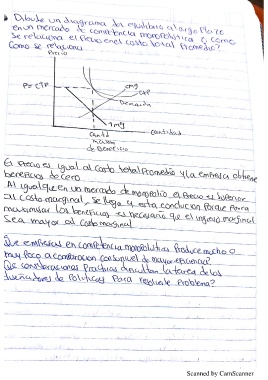 Dibuje un diagrama de equilibrio a largo Plazo
en un mercado de competencia monopolística ¿Como
se relaciona el Precio en el costo total Promedio?
Como se relaciona
Precio
P=CTP
cmg
CTP
Demanda
Img
cantidad
Cantd
de Beneficio
El Precio es igual al Costo total Promedio y la empresa obtiene
beneficios de cero.
Al igual que en un mercado de monopolio, el Precio es superior
al costo marginal, se llega a esta conducion Porque Para
maximisar los beneficios es necesario que el ingreso marginal
Sea mayor al costo marginal
Que empresas en competencia monopolistica Produce mucho o
muy Poco a comparacion con el nivel de mayor eficiencia?
Que consideraciones Practicas dificultan la tarea de los
diseñadores de Politicas Para resolverle Problema?
Scanned by CamScanner